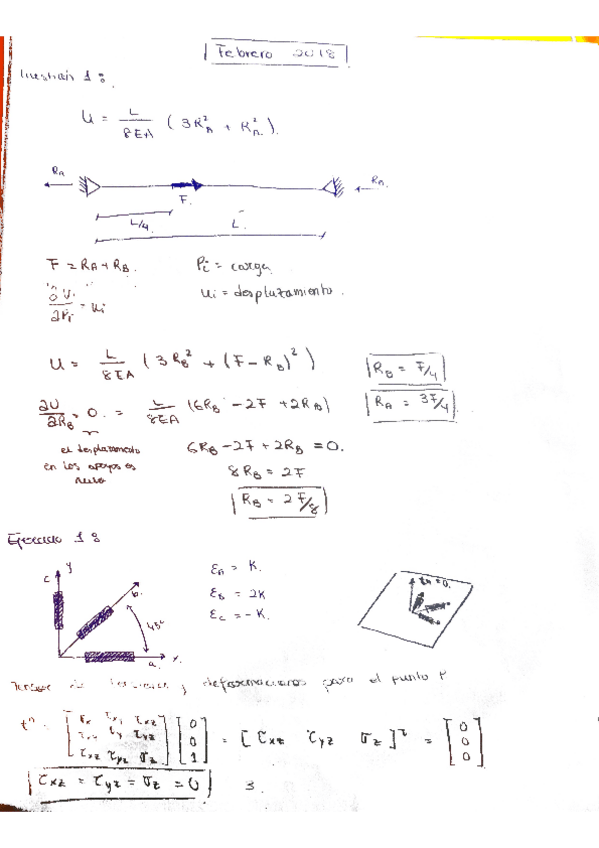 Febrero 2018
1:
U = L/8EA (3R²_A + R²_A).
R_A
R_A
F.
L/4
L.
F = R_A + R_B.
P_i = carga
∂U/∂P_i = u_i
u_i = desplazamiento.
U = L/8EA (3R_B² + (F - R_B)²)
R_B = F/4
∂U/∂R_B = 0. = L/8EA (6R_B - 2F + 2R_B)
R_A = 3F/4
el desplazamiento
en los apoyos es
nulo
6R_B - 2F + 2R_B = 0.
8R_B = 2F
R_B = 2F/8
Ejercicio 1:
c y
b.
45°
a. x.
ε_A = K.
ε_B = 2K
ε_C = -K.
tn = 0.
de y deformaciones para el punto P
tⁿ = [σx τxy τxz; τxy σy τyz; τxz τyz σz] [0; 0; 1] = [τxz τyz σz]ᵀ = [0; 0; 0]
τxz = τyz = σz = 0
3.